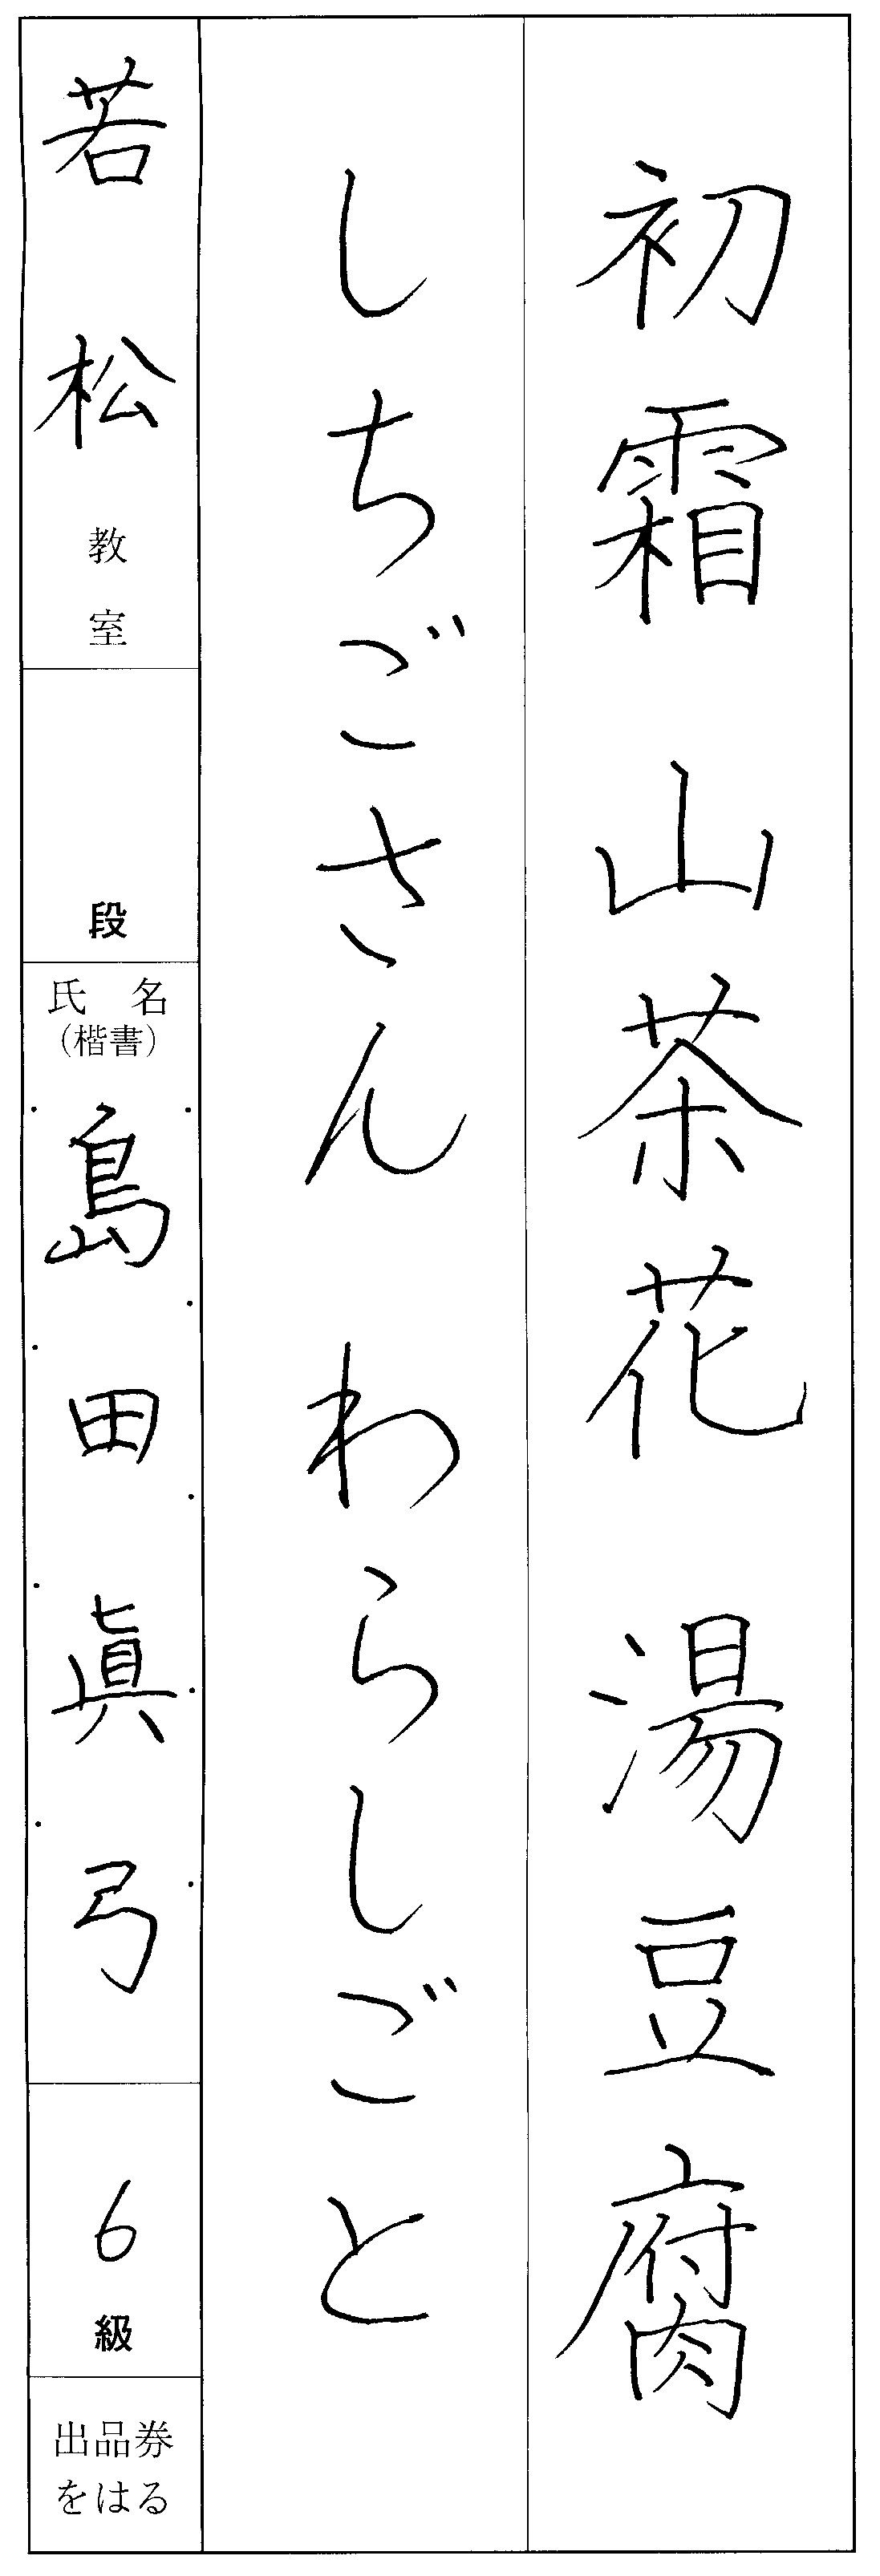 初霜 山茶花 湯豆腐
しちごさん わらしごと
若松教室
段
氏名
(楷書)
島田眞弓
6級
出品券
をはる